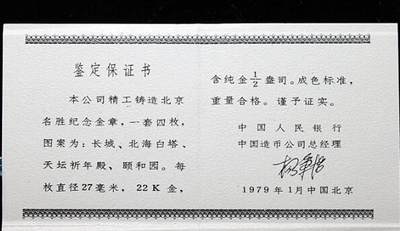 鉴定保证书
本公司精工铸造北京
名胜纪念金章，一套四枚，
图案为：长城、北海白塔、
天坛祈年殿、颐和园。每
枚直径27毫米，22K金，
含纯金1/2盎司。成色标准，
重量合格。谨予证实。
中国人民银行
中国造币公司总经理
1979年1月中国北京